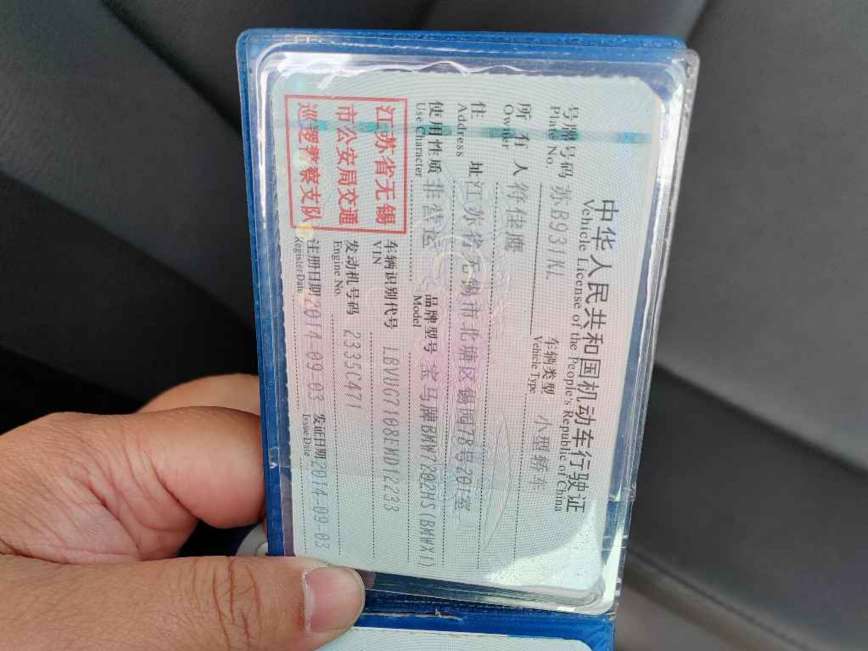 中华人民共和国机动车行驶证
Vehicle License of the People's Republic of China
号牌号码 苏B931NL 车辆类型 小型轿车
Plate No. Vehicle Type
所有人 符佳鹰
Owner
住址 江苏省无锡市北塘区锡园78号201室
Address
使用性质 非营运 品牌型号 宝马牌BMW7202HS(BMWX1)
Use Character Model
江苏省无锡
市公安局交通
巡逻警察支队
车辆识别代号 LBVUG7108EMD12233
VIN
发动机号码 2335C471
Engine No.
注册日期 2014-09-03 发证日期 2014-09-03
Register Date Issue Date